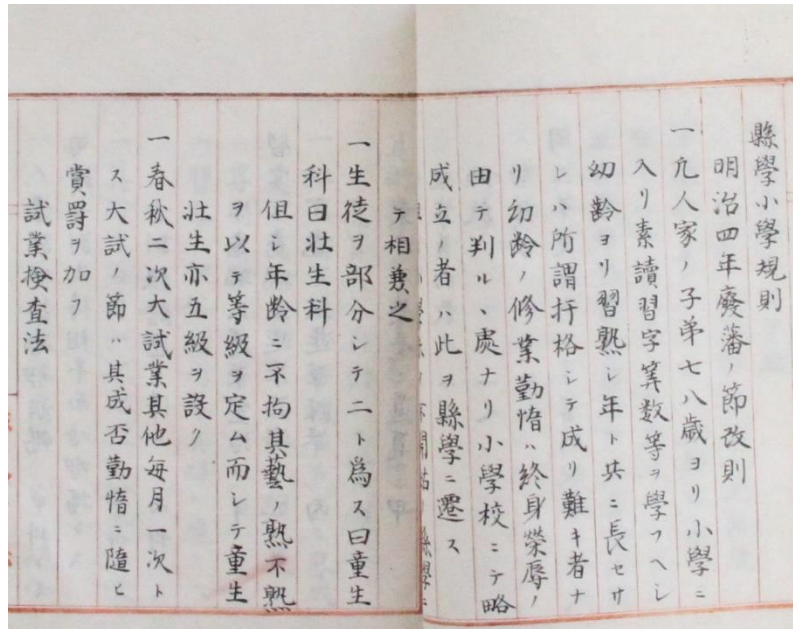 縣學小學規則
明治四年廢藩ノ節改則
一凡人家ノ子弟七八歳ヨリ小學ニ
入リ素讀習字筭数等ヲ學フヘシ
幼齢ヨリ習熟シ年ト共ニ長セサ
レハ所謂扞格シテ成リ難キ者ナ
リ幼齢ノ修業勤惰ハ終身榮辱ノ
由テ判ルヽ處ナリ小學校ニテ略
成立ノ者ハ此ヲ縣學ニ遷ス
テ相兼之
一生徒ヲ部分シテ二ト為ス曰童生
科曰壮生科
但シ年齢ニ不拘其藝ノ熟不熟
ヲ以テ等級ヲ定ム而シテ童生
壮生亦五級ヲ設ク
一春秋二次大試業其他毎月一次ト
ス大試ノ節ハ其成否勤惰ニ随ヒ
賞罰ヲ加フ
試業檢査法